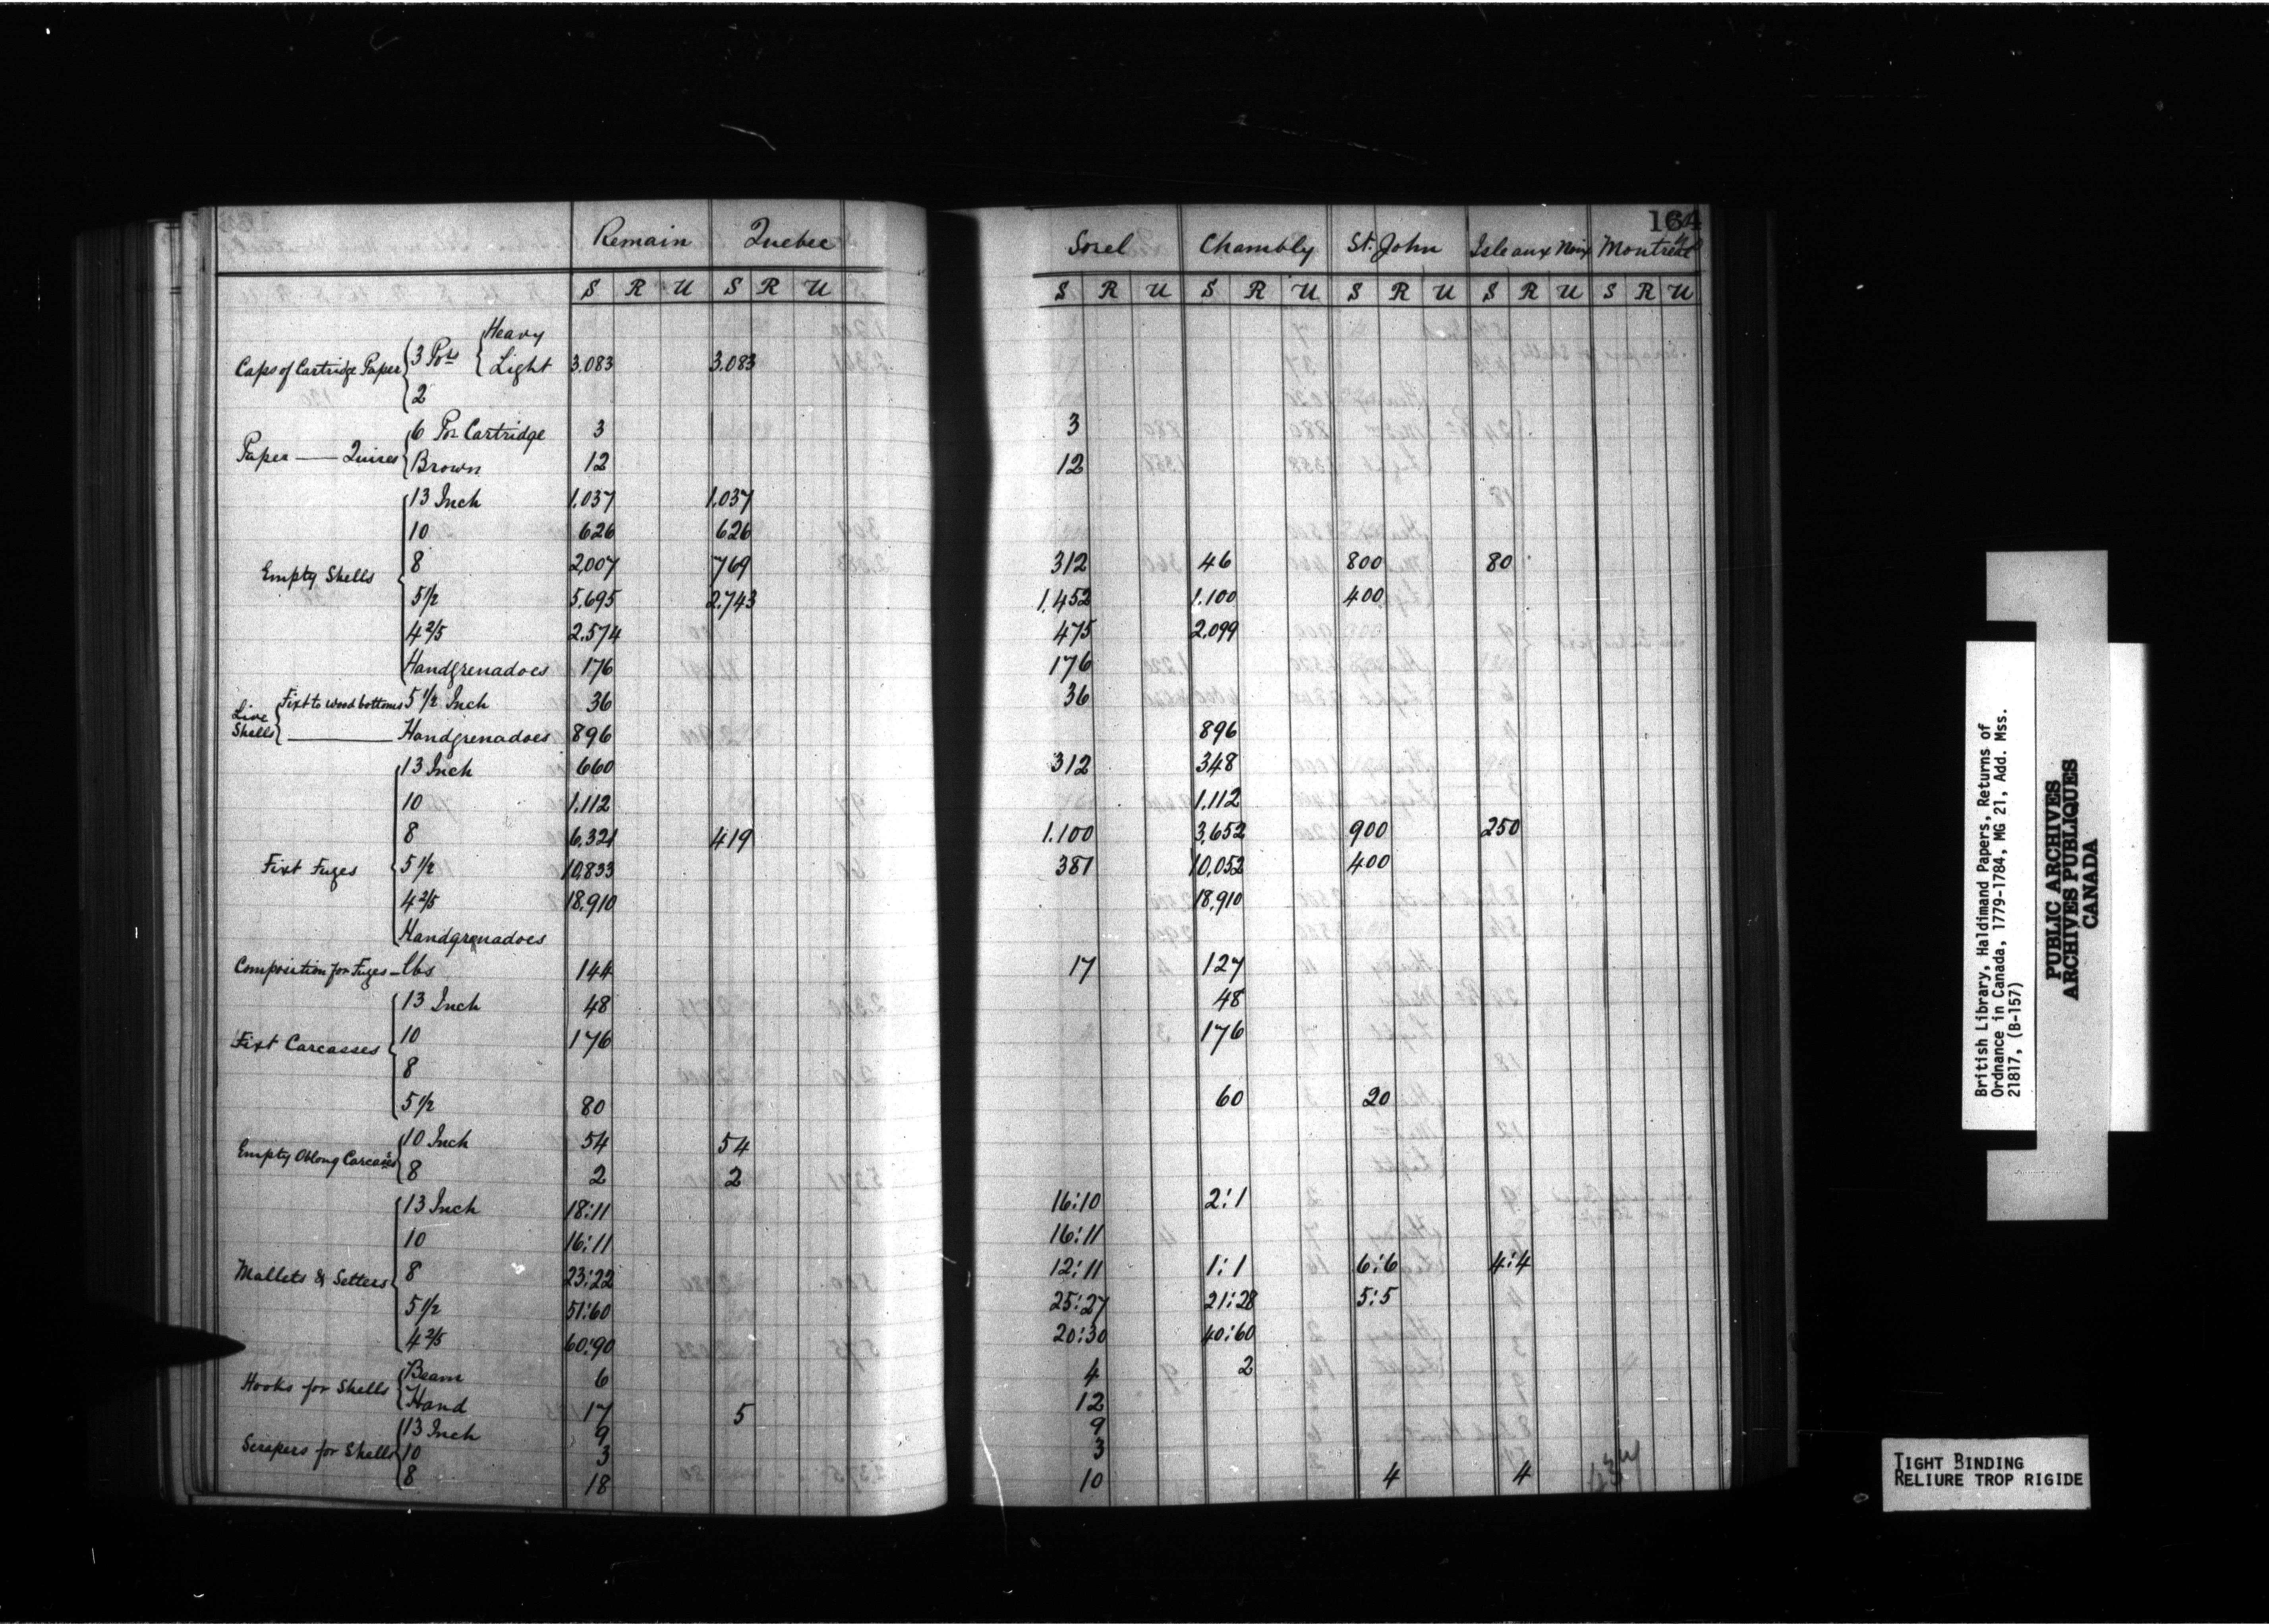 164
Remain Quebec Sorel Chambly St. John Isle aux Noix Montreal
S R U S R U S R U S R U S R U S R U S R U
Heavy
Caps of Cartridge Paper 3 Pos Light 3.083 3.083
2
6 Por Cartridge 3 3
Paper — Quires Brown 12 12
13 Inch 1.037 1.037
10 626 626
8 2,007 769 312 46 800 80
Empty Shells
5 1/2 5.695 2.743 1,452 1.100 400
4 2/5 2.574 475 2,099
Handgrenadoes 176 176
Live Shells Fixt to wood bottoms 5 1/2 Inch 36 36
Handgrenadoes 896 896
13 Inch 660 312 348
10 1.112 1.112
8 6,321 419 1.100 3,652 900 250
Fixt Fuzes 5 1/2 10,833 381 10,052 400
4 2/5 18,910 18,910
Handgrenadoes
Composition for Fuzes — lbs 144 17 127
13 Inch 48 48
Fixt Carcasses 10 176 176
8
5 1/2 80 60 20
Empty Oblong Carcases 10 Inch 54 54
8 2 2
13 Inch 18:11 16:10 2:1
10 16:11 16:11
Mallets & Setters 8 23:22 12:11 1:1 6:6 4:4
5 1/2 51:60 25:27 21:28 5:5
4 2/5 60:90 20:30 40:60
Hooks for Shells Beam 6 4 2
Hand 17 5 12
13 Inch 9 9
Scrapers for Shells 10 3 3
8 18 10 4 4
British Library, Haldimand Papers, Returns of
Ordnance in Canada, 1779-1784, MG 21, Add. Mss.
21817, (B-157)
PUBLIC ARCHIVES
ARCHIVES PUBLIQUES
CANADA
TIGHT BINDING
RELIURE TROP RIGIDE